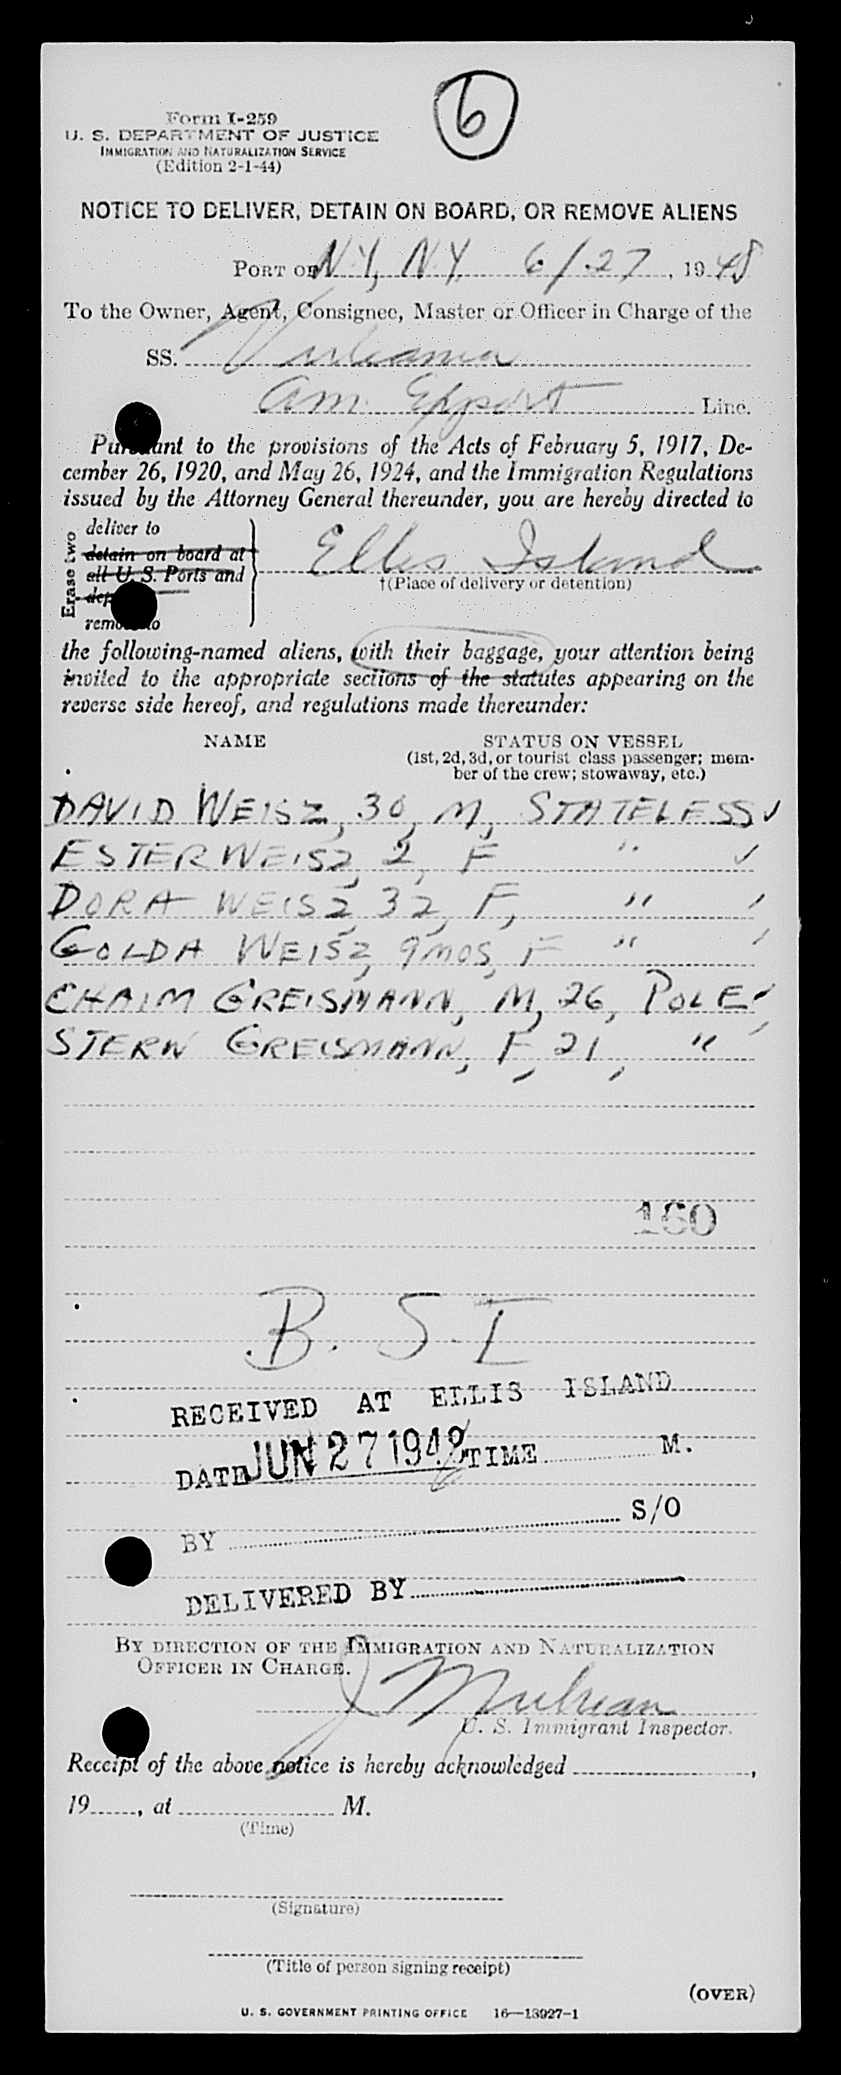 6
Form I-259
U. S. DEPARTMENT OF JUSTICE
IMMIGRATION AND NATURALIZATION SERVICE
(Edition 2-1-44)
NOTICE TO DELIVER, DETAIN ON BOARD, OR REMOVE ALIENS
PORT OF N.Y., N.Y. 6/27, 1948
To the Owner, Agent, Consignee, Master or Officer in Charge of the
SS. Vulcania
Am. Export Line.
Pursuant to the provisions of the Acts of February 5, 1917, De-
cember 26, 1920, and May 26, 1924, and the Immigration Regulations
issued by the Attorney General thereunder, you are hereby directed to
Erase two
deliver to
detain on board at
all U. S. Ports and
remove to
Ellis Island
†(Place of delivery or detention)
the following-named aliens, with their baggage, your attention being
invited to the appropriate sections of the statutes appearing on the
reverse side hereof, and regulations made thereunder:
NAME STATUS ON VESSEL
(1st, 2d, 3d, or tourist class passenger; mem-
ber of the crew; stowaway, etc.)
DAVID WEISZ, 30, M, STATELESS ✓
ESTER WEISZ, 2, F " ✓
DORA WEISZ, 32, F, " ✓
GOLDA WEISZ, 9 MOS, F " ✓
CHAIM GREISMANN, M, 26, POLE ✓
STERN GREISMANN, F, 21, " ✓
160
B. S. I
RECEIVED AT ELLIS ISLAND
DATE JUN 27 1948 TIME M.
BY S/O
DELIVERED BY
BY DIRECTION OF THE IMMIGRATION AND NATURALIZATION
OFFICER IN CHARGE.
U. S. Immigrant Inspector.
Receipt of the above notice is hereby acknowledged ,
19 , at M.
(Time)
(Signature)
(Title of person signing receipt)
(OVER)
U. S. GOVERNMENT PRINTING OFFICE 16—13927-1